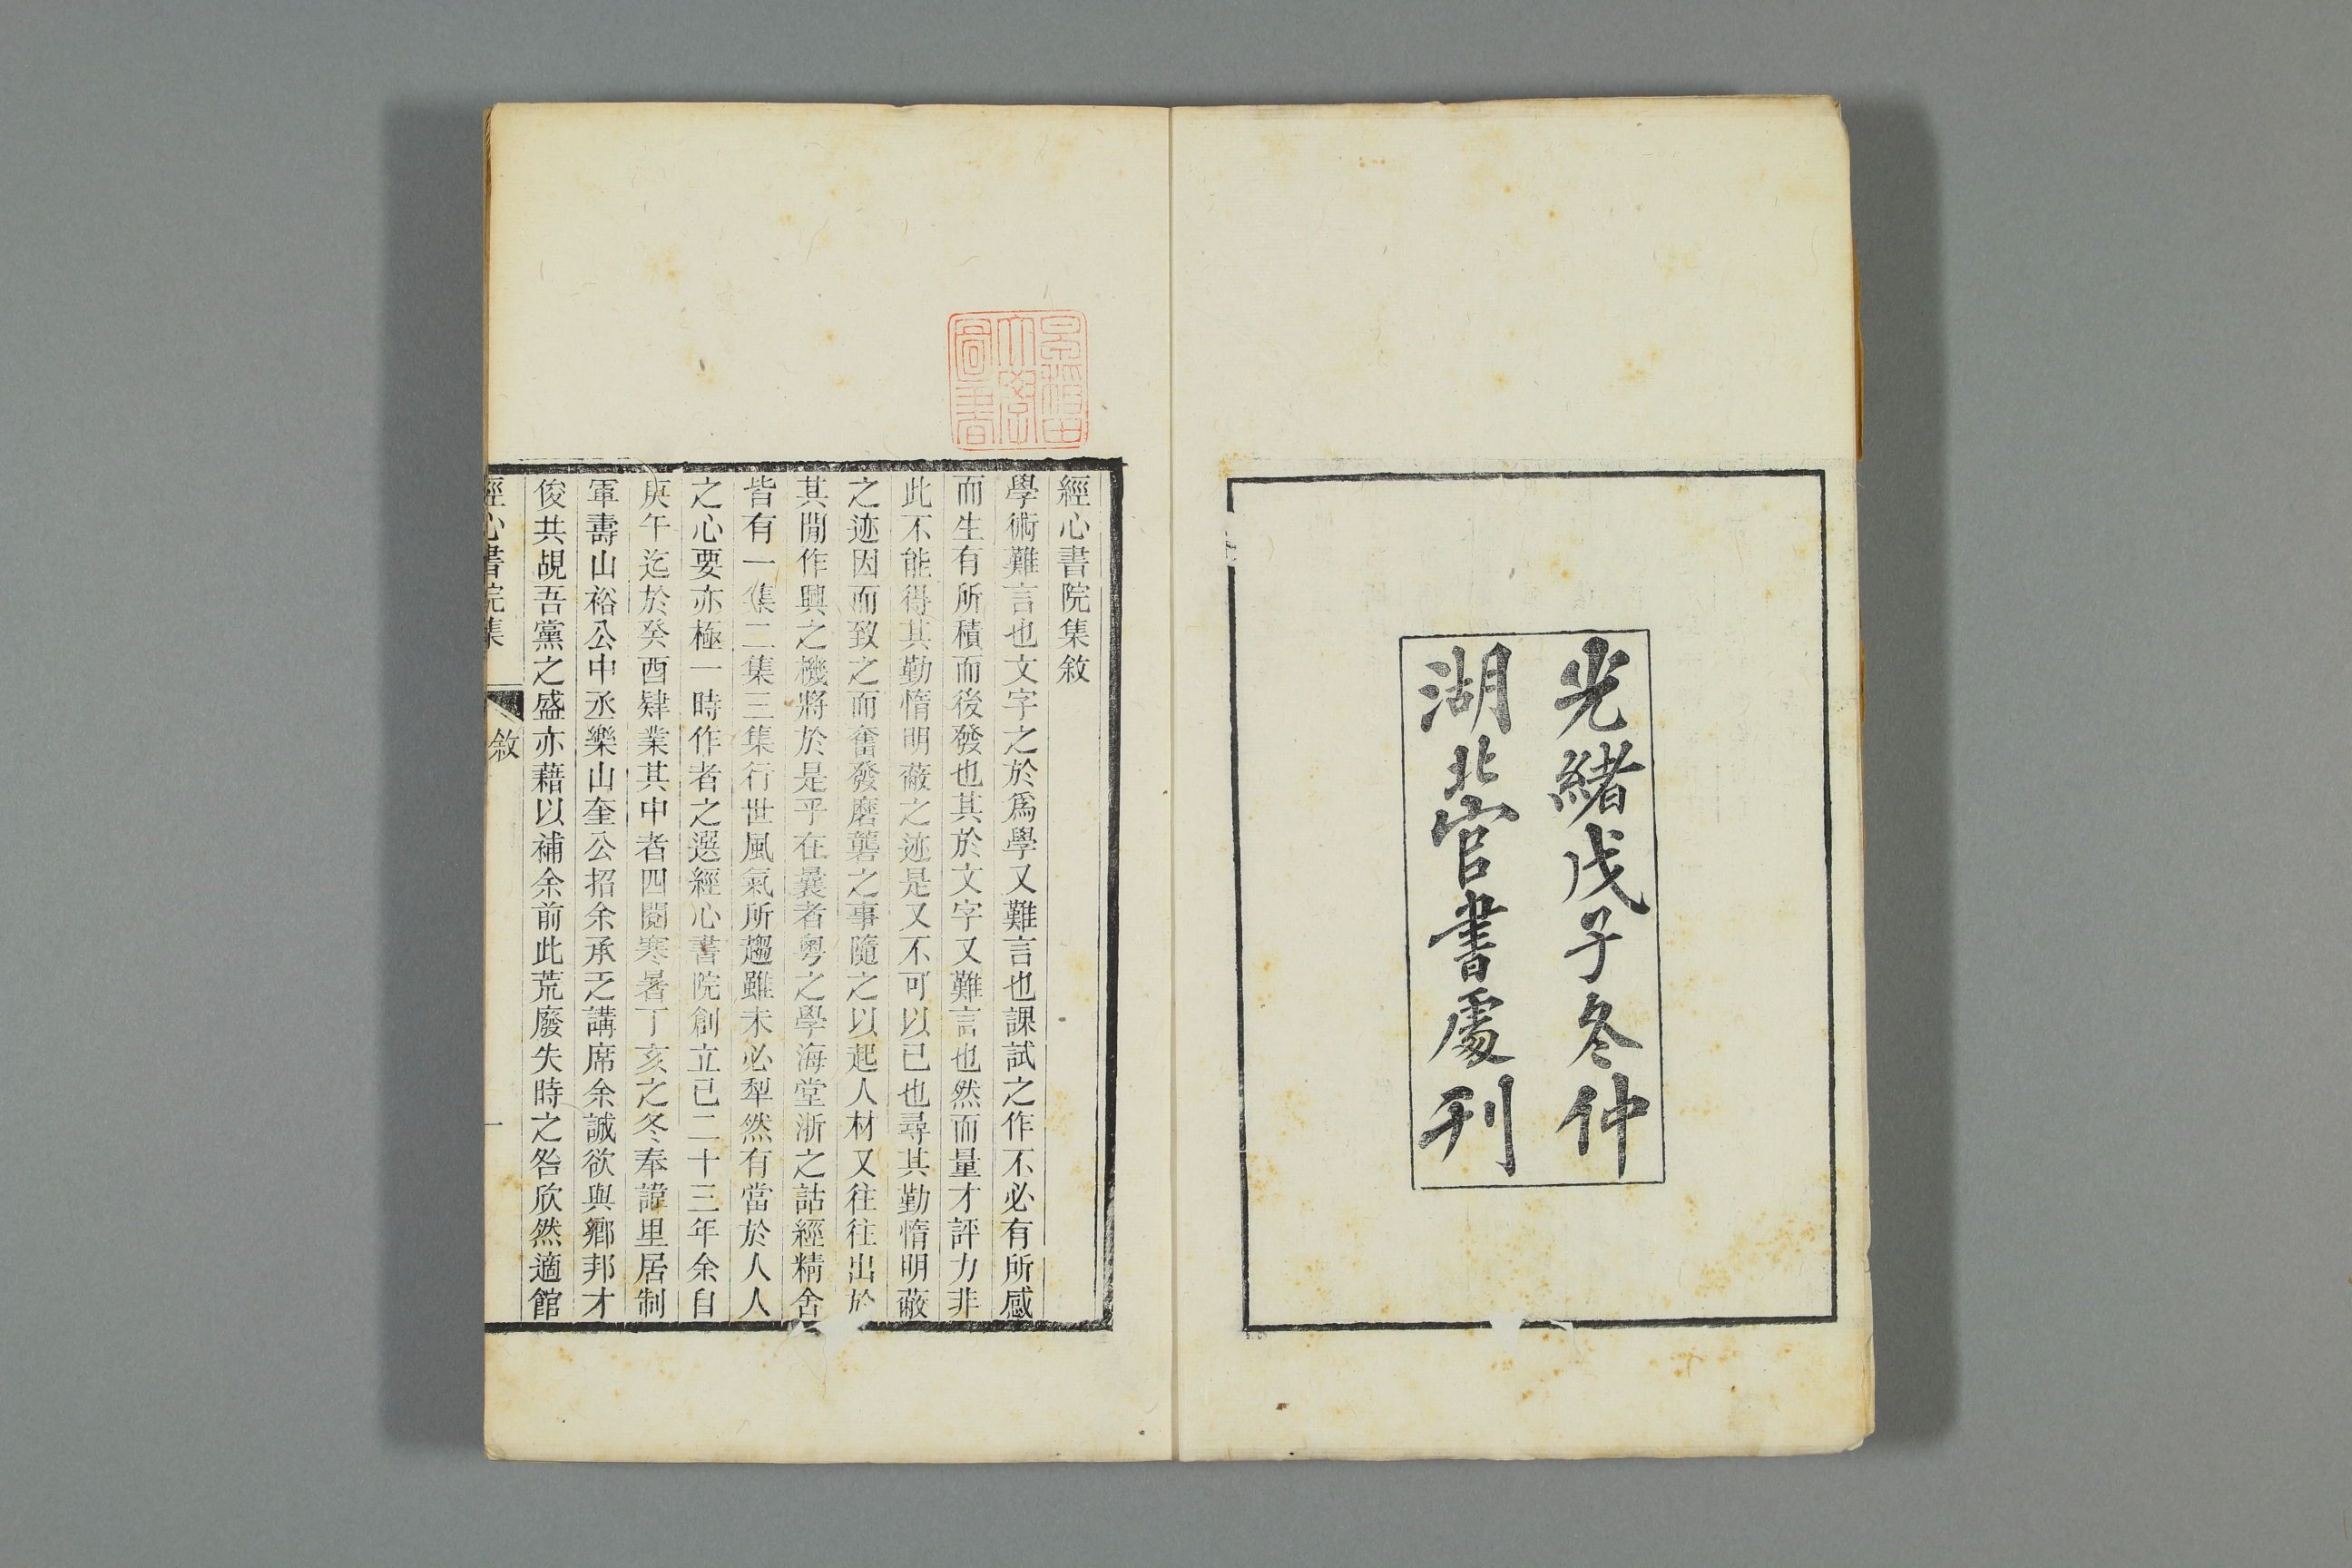 光緒戊子冬仲
湖北官書處刊
早稻田
大學
圖書
經心書院集敘
學術難言也文字之於爲學又難言也課試之作不必有所感
而生有所積而後發也其於文字又難言也然而量才評力非
此不能得其勤惰明蔽之迹是又不可以已也尋其勤惰明蔽
之迹因而致之而奮發磨礱之事隨之以起人材又往往出於
其閒作興之機將於是乎在曩者粵之學海堂浙之詁經精舍
皆有一集二集三集行世風氣所趨雖未必犁然有當於人人
之心要亦極一時作者之選經心書院創立已二十三年余自
庚午迄於癸酉肄業其中者四閱寒暑丁亥之冬奉諱里居制
軍壽山裕公中丞樂山奎公招余承乏講席余誠欲與鄉邦才
俊共覘吾黨之盛亦藉以補余前此荒廢失時之咎欣然適館
經心書院集 敘 一